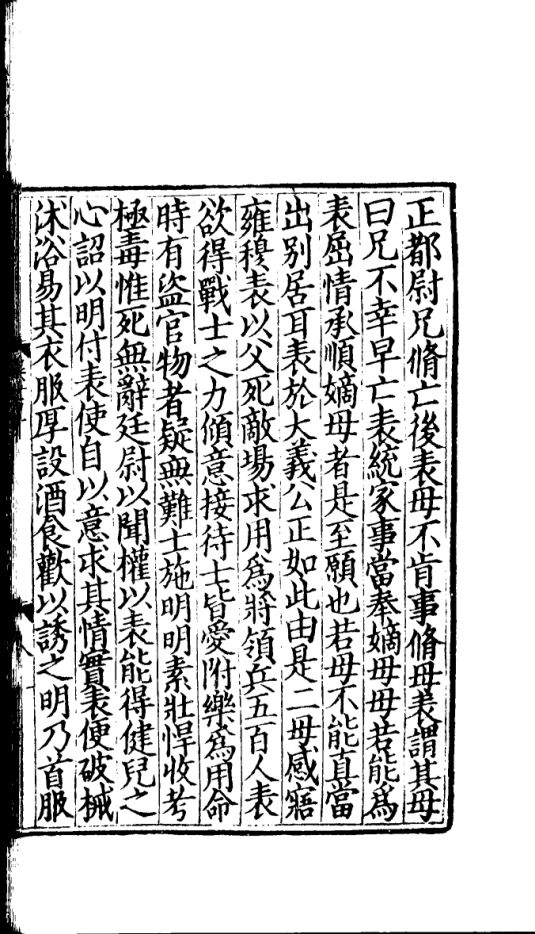 正都尉兄脩亡後表母不肯事脩母表謂其母
曰兄不幸早亡表統家事當奉嫡母母若能爲
表屈情承順嫡母者是至願也若母不能直當
出別居耳表於大義公正如此由是二母感寤
雍穆表以父死敵場求用爲將領兵五百人表
欲得戰士之力傾意接待士皆愛附樂爲用命
時有盜官物者疑無難士施明明素壯悍收考
極毒惟死無辭廷尉以聞權以表能得健兒之
心詔以明付表使自以意求其情實表便破械
沐浴易其衣服厚設酒食歡以誘之明乃首服